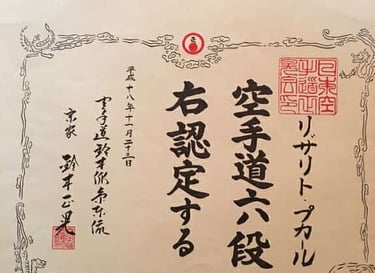 リザリト・プカール
空手道六段
右認定する
平成十八年十一月二十三日
空手道鈴木派糸東流
宗家 鈴木正晃